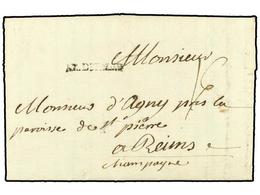 Monsieur
Monsieur d'Agny près la
paroisse de St pierre
a Reims
champagne